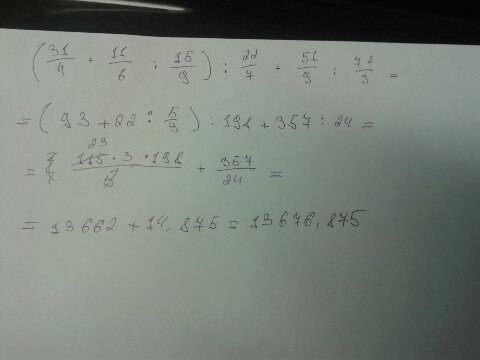 (31/4 + 11/6 : 15/9) : 22/7 + 51/9 : 72/3 =
= (93 + 22 : 5/9) : 198 + 357 : 24 =
= 23 115 · 3 · 198 / 5 + 357/24 =
= 13662 + 14,875 = 13676,875